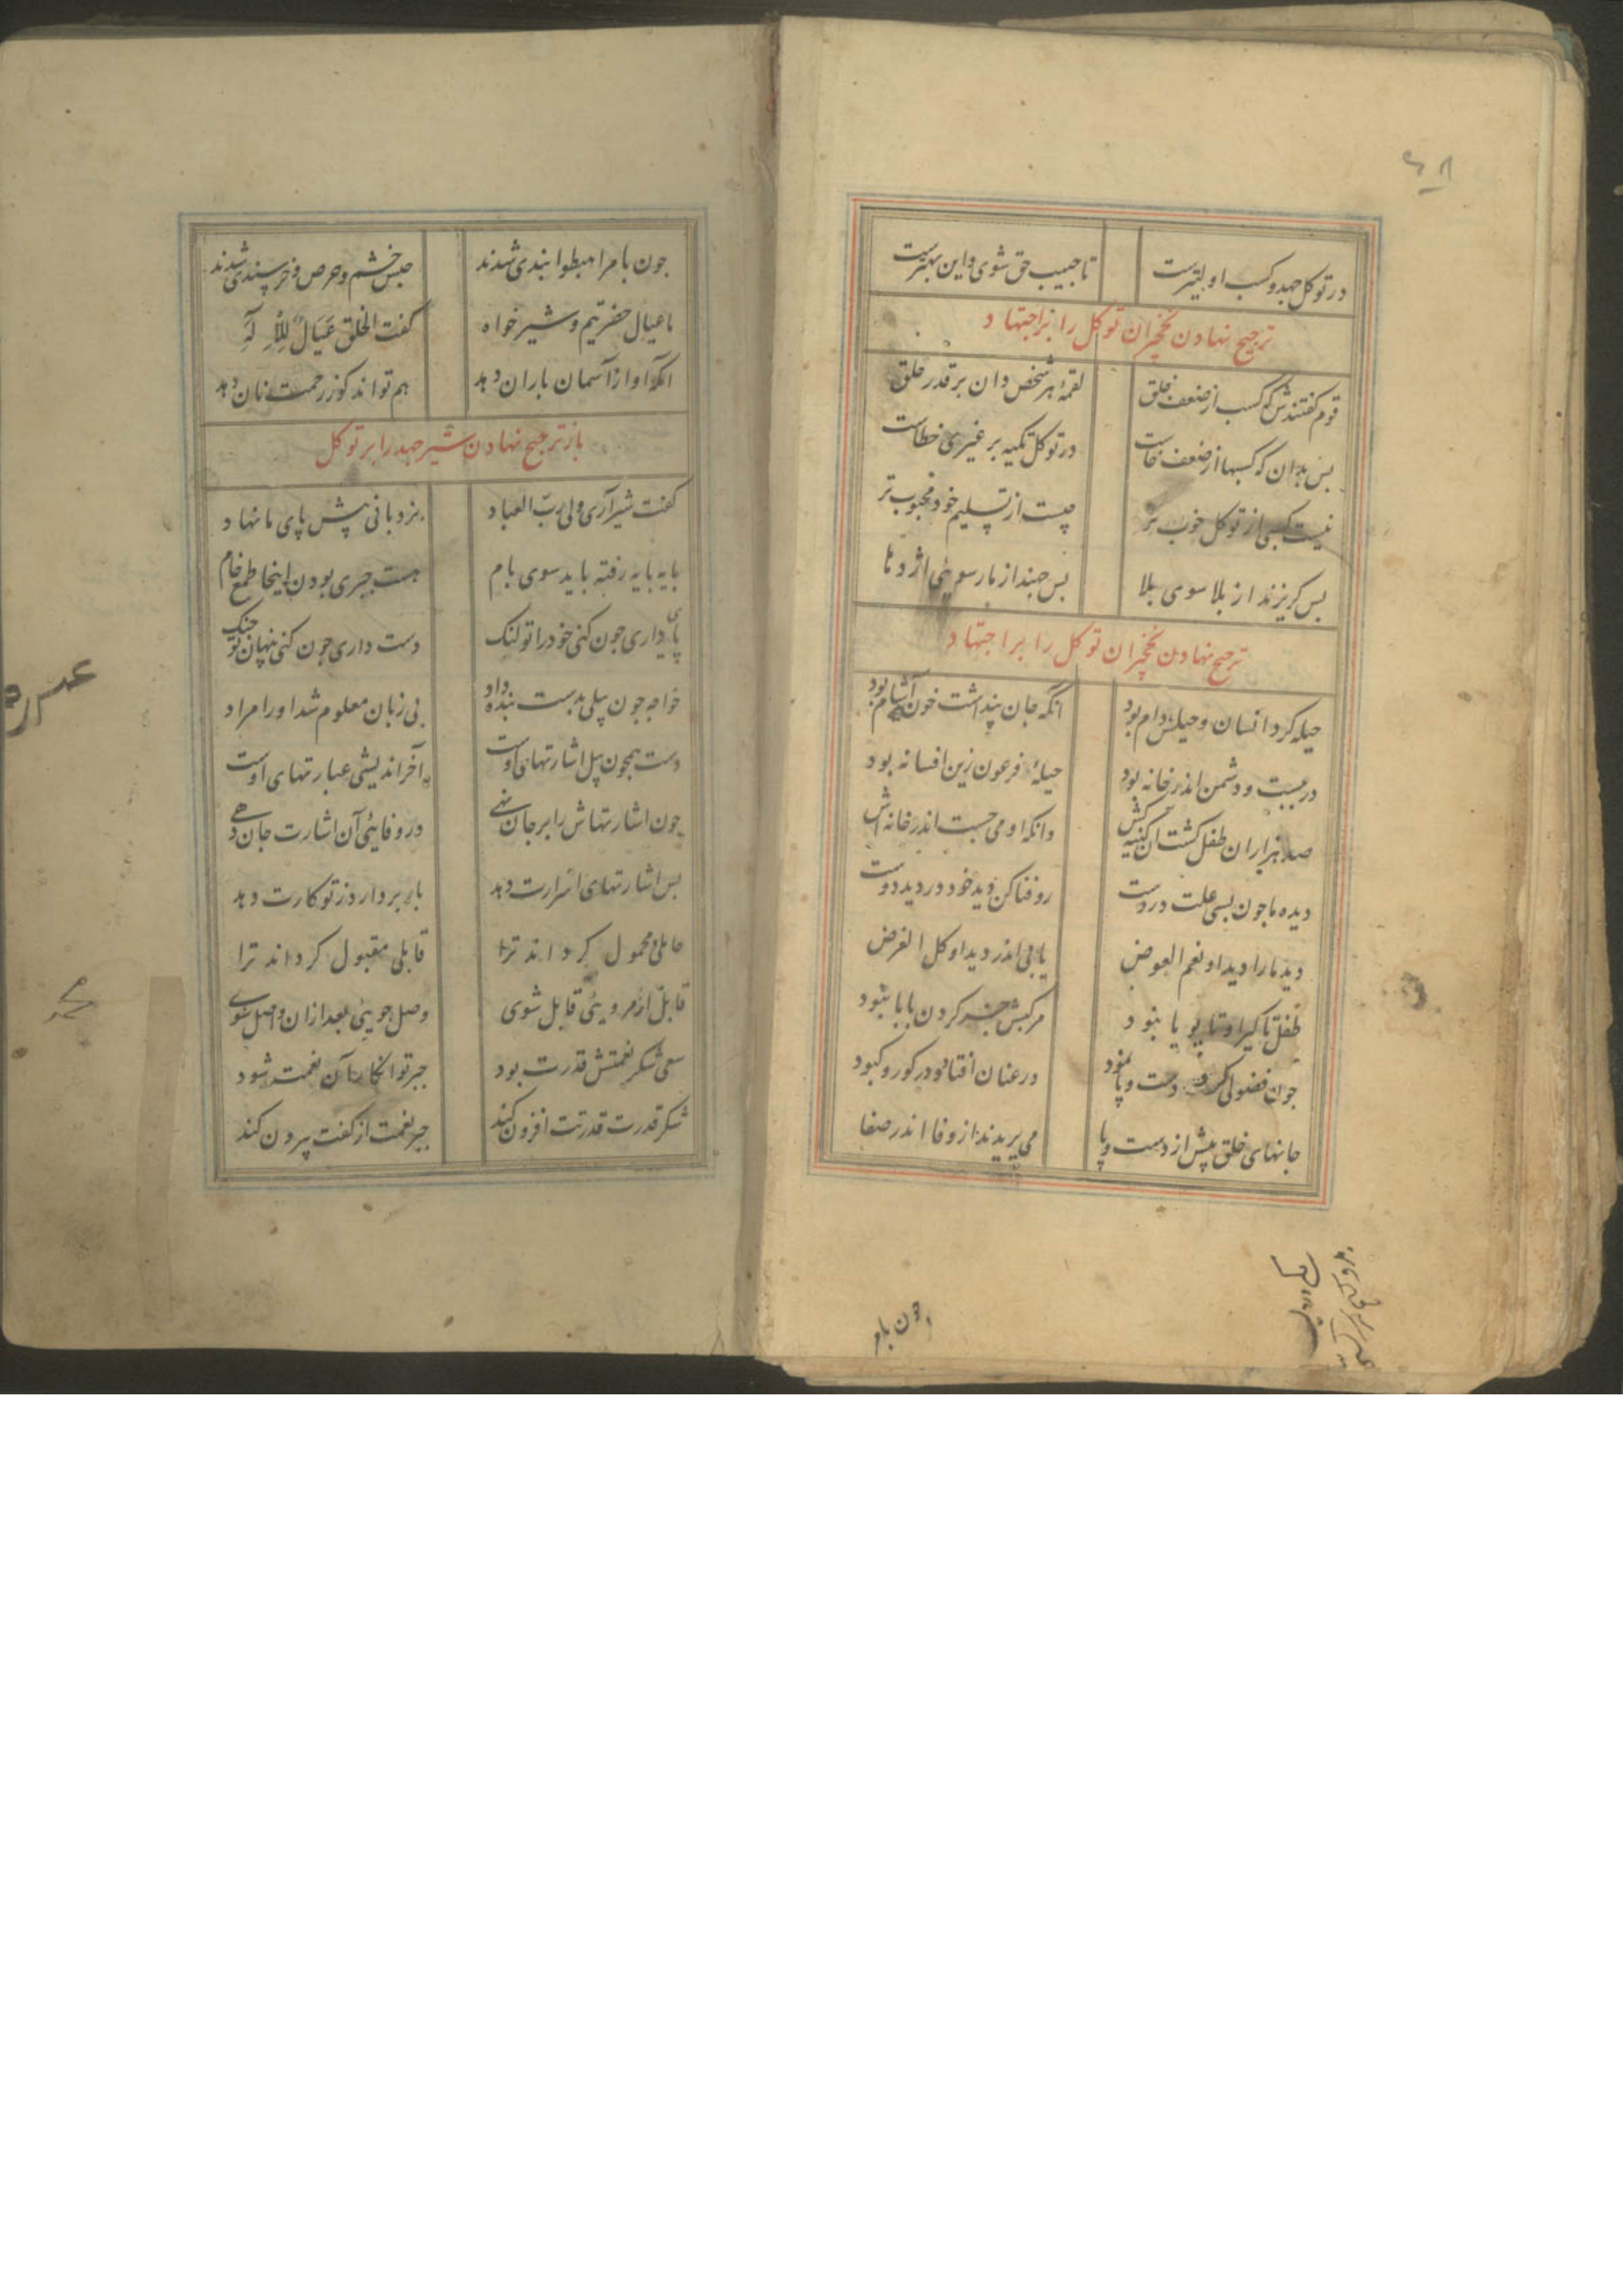 ۶۸
در توکل جهد و کسب اولیترست تا حبیب حق شوی و این بهترست
ترجیح نهادن نخچیران توکل را بر اجتهاد
قوم گفتندش که کسب از ضعف خلق لقمهٔ هر شخص دان بر قدر حلق
بس بدان که کسبها از ضعف خاست در توکل تکیه بر غیری خطاست
نیست کسبی از توکل خوب تر چیست از تسلیم خود محبوب تر
بس کریزند از بلا سوی بلا بس جهند از مار سوی اژدها
ترجیح نهادن نخچیران توکل را بر اجتهاد
حیله کرد انسان و حیلش دام بود انکه جان پنداشت خون آشام بود
در ببست و دشمن اندر خانه بود حیلهٔ فرعون زین افسانه بود
صد هزاران طفل کشت آن کینه کش وانکه او می جست اندر خانه اش
دیده ما جون بسی علت دروست رو فنا کن دید خود در دید دوست
دید ما را دید او نعم العوض یابی اندر دید او کل الغرض
طفل تا کیرا و تا پویا نبود مرکبش جز کردن بابا نبود
جون فضولی کرد و دست و پا نمود در عنان افتاد و در کور و کبود
جانهای خلق پیش از دست و پا می پریدند از وفا اندر صفا
جون بامر
جون بامر اهبطوا بندی شدند حبس خشم و حرص و خرسندی شدند
ما عیال حضرتیم و شیر خواه کفت الخلق عیال للاله
انکه او از آسمان باران دهد هم تواند کو ز رحمت نان دهد
باز ترجیح نهادن شیر جهد را بر توکل
کفت شیر آری ولی رب العباد نردبانی پیش پای ما نهاد
بایه بایه رفته باید سوی بام هست جبری بودن اینجا طمع خام
پای داری جون کنی خود را تو لنک دست داری جون کنی پنهان تو جنک
خواجه جون بیلی بدست بنده داد بی زبان معلوم شد او را مراد
دست همجون بیل اشارتهای اوست آخر اندیشی عبارتهای اوست
جون اشارتهاش را بر جان نهی در وفائی آن اشارت جان دهی
بس اشارتهای اسرارت دهد بار بردارد ز تو کارت دهد
حاملی محمول کرداند ترا قابلی مقبول کرداند ترا
قابل امر ویئی قابل شوی وصل جویئی بعد ازان واصل شوی
سعی شکر نعمتش قدرت بود جبر تو انکار آن نعمت شود
شکر قدرت قدرتت افزون کند جبر نعمت از کفت بیرون کند
محمد